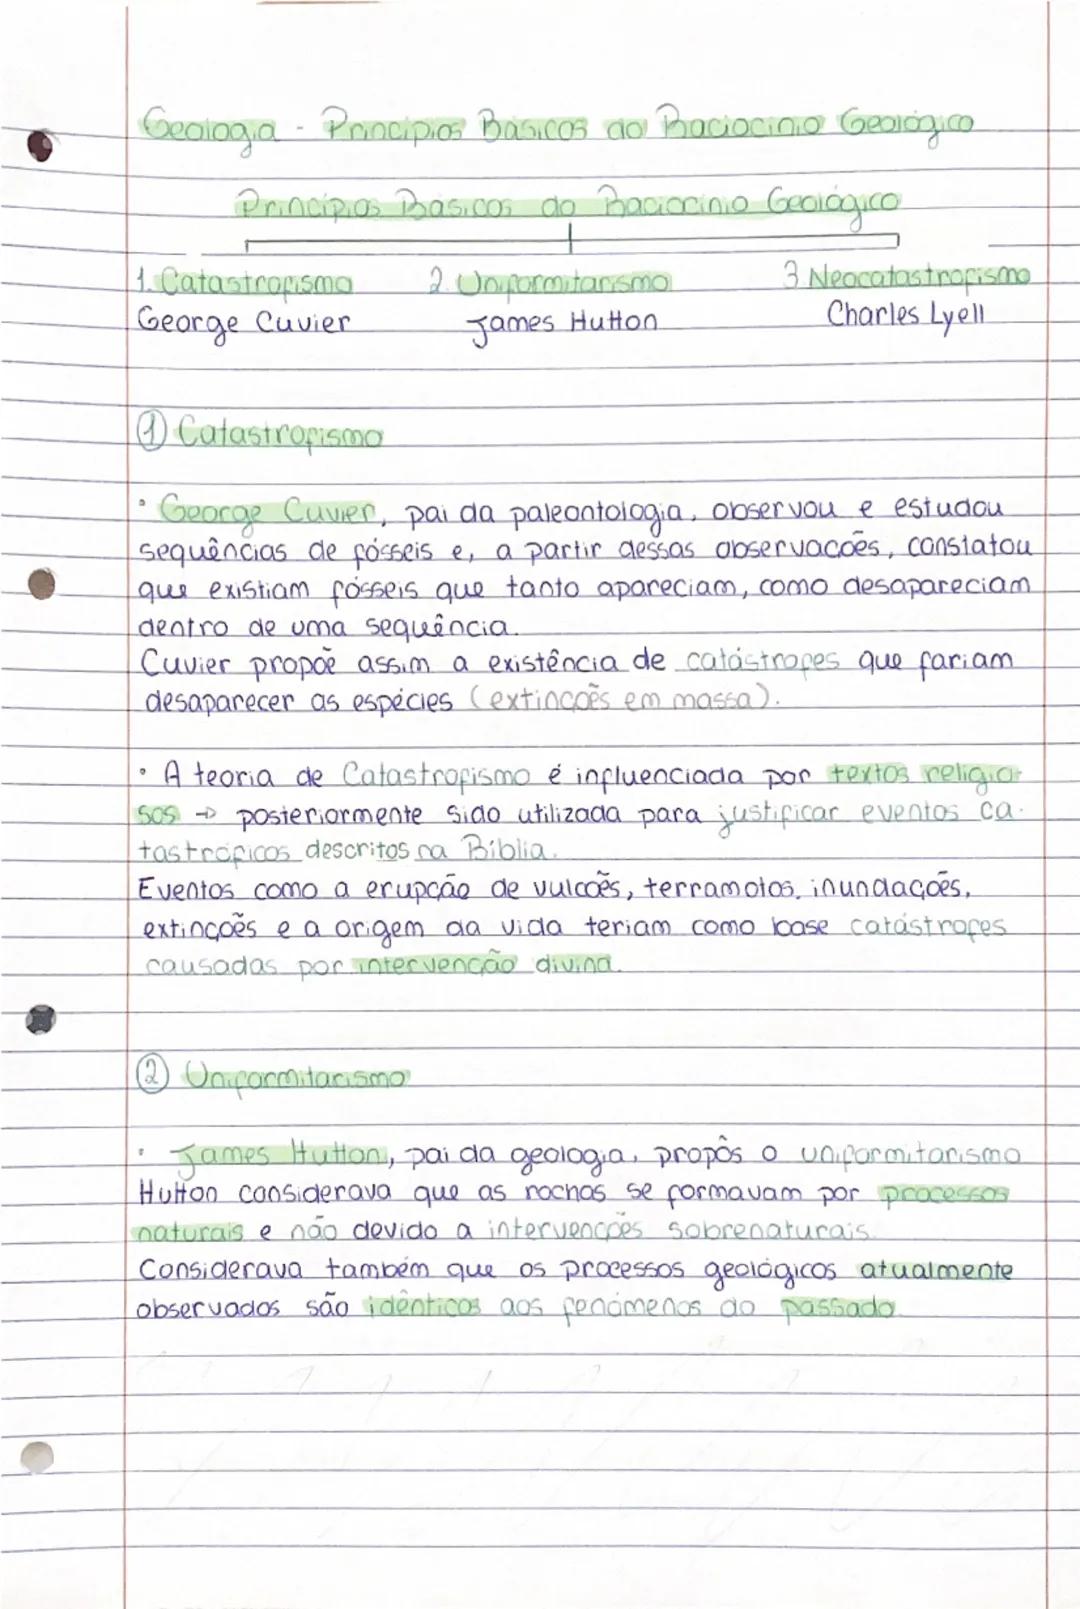 Geologia - Princípios Básicos do Raciocínio Geológico
Princípios Básicos do Raciocínio Geológico
1. Catastrofismo 2. Uniformitarismo 3 Neocatastrofismo
George Cuvier James Hutton Charles Lyell
① Catastrofismo
• George Cuvier, pai da paleontologia, observou e estudou
sequências de fósseis e, a partir dessas observações, constatou
que existiam fósseis que tanto apareciam, como desapareciam
dentro de uma sequência.
Cuvier propõe assim a existência de catástrofes que fariam
desaparecer as espécies (extinções em massa).
• A teoria de Catastrofismo é influenciada por textos religio-
sos → posteriormente sido utilizada para justificar eventos ca-
tastróficos descritos na Bíblia.
Eventos como a erupção de vulcões, terramotos, inundações,
extinções e a origem da vida teriam como base catástrofes
causadas por intervenção divina.
② Uniformitarismo
• James Hutton, pai da geologia, propôs o uniformitarismo
Hutton considerava que as rochas se formavam por processos
naturais e não devido a intervenções sobrenaturais.
Considerava também que os processos geológicos atualmente
observados são idênticos aos fenómenos do passado.